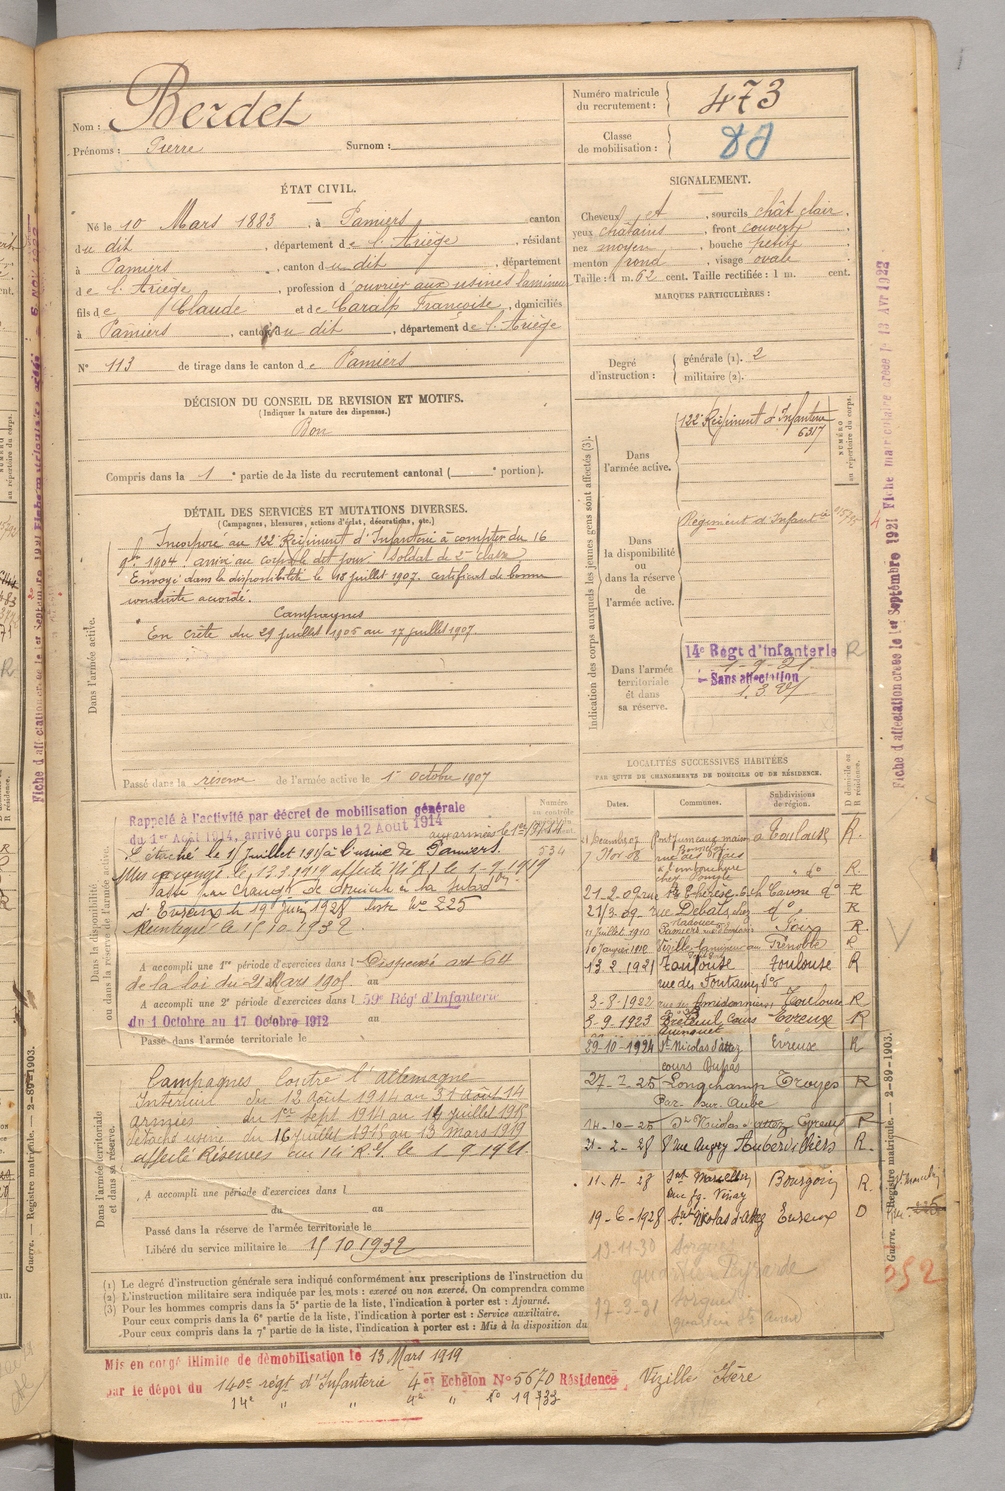 Nom : Berdet
Prénoms : Pierre Surnom :
Numéro matricule du recrutement : 473
Classe de mobilisation :
ÉTAT CIVIL.
Né le 10 Mars 1883, à Pamiers, canton
du dit, département de l'Ariège, résidant
à Pamiers, canton du dit, département
de l'Ariège, profession d'ouvrier aux usines lamineur
fils de Claude et de Caralp Françoise, domiciliés
à Pamiers, canton du dit, département de l'Ariège
N° 113 de tirage dans le canton de Pamiers
SIGNALEMENT.
Cheveux et, sourcils chât clair,
yeux châtains, front couvert,
nez moyen, bouche petite,
menton rond, visage ovale
Taille : 1 m. 62 cent. Taille rectifiée : 1 m. cent.
MARQUES PARTICULIÈRES :
Degré d'instruction : générale (1). 2
militaire (2).
DÉCISION DU CONSEIL DE REVISION ET MOTIFS.
(Indiquer la nature des dispenses.)
Bon
Compris dans la 1e partie de la liste du recrutement cantonal ( e portion).
DÉTAIL DES SERVICES ET MUTATIONS DIVERSES.
(Campagnes, blessures, actions d'éclat, décorations, etc.)
Dans l'armée active.
Incorporé au 122e Régiment d'Infanterie à compter du 16
9bre 1904. arrivé au corps le dit jour soldat de 2e classe
Envoyé dans la disponibilité le 18 juillet 1907. certificat de bonne
conduite accordé.
Campagnes
En Crète du 29 juillet 1905 au 17 juillet 1907.
Passé dans la réserve de l'armée active le 1er octobre 1907
Indication des corps auxquels les jeunes gens sont affectés (3).
NUMÉRO au répertoire du corps.
Dans l'armée active.
122e Régiment d'Infanterie
6317
Dans la disponibilité ou dans la réserve de l'armée active.
Régiment d'Infanterie
Dans l'armée territoriale et dans sa réserve.
14e Régt d'infanterie R
1-9-21
Sans affectation
Dans la disponibilité ou dans la réserve de l'armée active.
Rappelé à l'activité par décret de mobilisation générale
du 1er Août 1914, arrivé au corps le 12 Août 1914
aux armées le 1er
Détaché le 15 juillet 1915 à l'usine de Pamiers.
Passé par changt de domicile en la subdon
d'Evreux le 19 juin 1928 liste No 225
Réintégré le 15 10 1932.
A accompli une 1re période d'exercices dans l Dispensé art 64
de la loi du 21 Mars 1905. au
A accompli une 2e période d'exercices dans l 59e Régt d'Infanterie
du 1 Octobre au 17 Octobre 1912 au
Passé dans l'armée territoriale le
Dans l'armée territoriale et dans sa réserve.
Campagnes Contre l'Allemagne
Intérieur du 12 août 1914 au 31 août 14
armées du 1er sept 1914 au 14 juillet 1915
détaché usine du 16 juillet 1915 au 13 mars 1919
affecté Réserves au 14e R.I. le 1.9.1921.
A accompli une période d'exercices dans l
du au
Passé dans la réserve de l'armée territoriale le
Libéré du service militaire le 15 10 1932
LOCALITÉS SUCCESSIVES HABITÉES
PAR SUITE DE CHANGEMENTS DE DOMICILE OU DE RÉSIDENCE.
Dates. Communes. Subdivisions de région. D domicile ou R résidence.
Toulouse R.
7 Nov 08 do R
21.2.09 rue Ste Thérèse do R
21/3.09 rue Debats do R
11 juillet 1910 Pamiers Foix R.
10 Janvier 1912 Vizille Grenoble R
13.2.1921 Toulouse Toulouse R
rue des Fontaines do
3-8-1922 rue des Amidonniers Toulouse R
5-9-1923 Breteuil Cours Evreux R
29-10-1924 St Nicolas d'Attez Evreux R
cours Dupas
27-7-25 Longchamp Troyes R
Bar sur Aube
14-10-25 St Nicolas d'attez Evreux R
21-2-28 8 rue Augry Aubervilliers R.
11-4-28 Saint Marcellin Bourgoin R.
rue fg. Vinay
19-6-1928 St Nicolas d'Attez Evreux D
13-11-30 Sorgues
17-3-31 Sorgues
quartier Ste Anne
(1) Le degré d'instruction générale sera indiqué conformément aux prescriptions de l'instruction du
(2) L'instruction militaire sera indiquée par les mots : exercé ou non exercé. On comprendra comme
(3) Pour les hommes compris dans la 5e partie de la liste, l'indication à porter est : Ajourné.
Pour ceux compris dans la 6e partie de la liste, l'indication à porter est : Service auxiliaire.
Pour ceux compris dans la 7e partie de la liste, l'indication à porter est : Mis à la disposition du
Mis en congé illimité de démobilisation le 13 Mars 1919
par le dépôt du 140e régt d'Infanterie 4e Echelon No 5670 Résidence Vizille Isère
14e " " 4e " No 19733
Fiche d'affectation créée le 1er Septembre 1921 Fiche matriculaire créée le 13 Avr 1922
Guerre. — Registre matricule. — 2-89-1903.